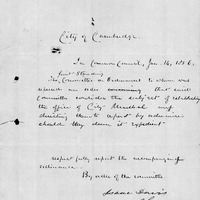 City of Cambridge.
In Common Council, Jan. 14, 1886.
Joint Standing
The Committee on Ordinances to whom was
referred an order concerning that said
Committee consider the subject of establishing
the office of City Marshal and
directing them to report by ordinance
should they deem it expedient
respectfully report the accompanying
ordinance.
By order of the committee
Isaac